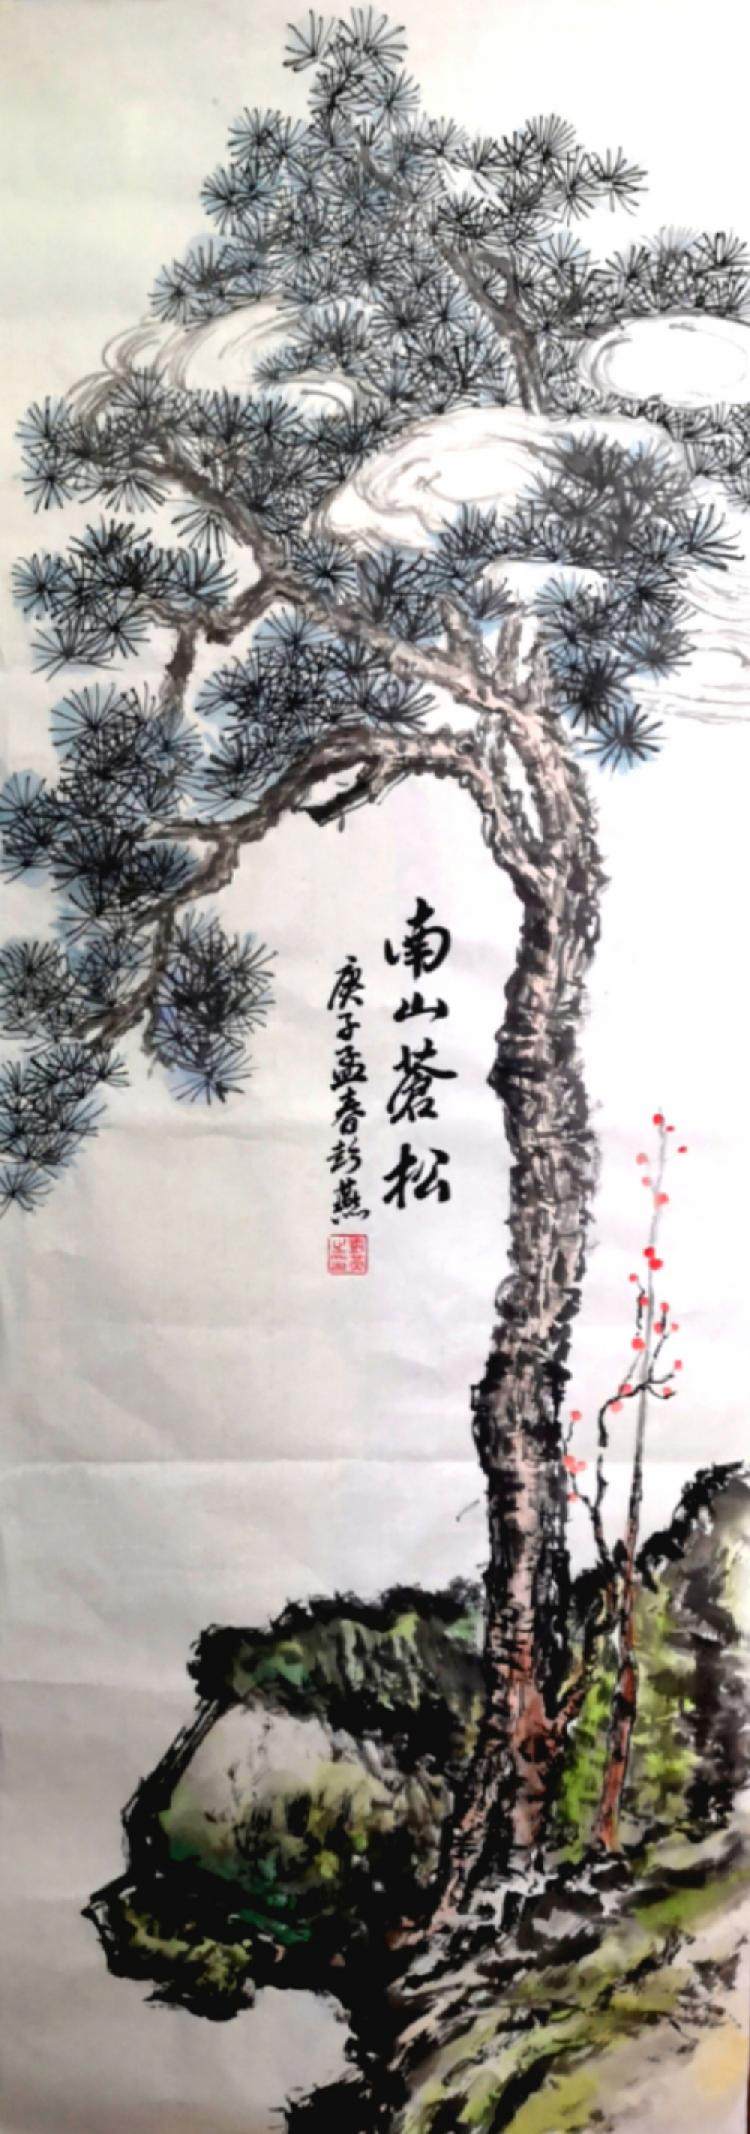 南山蒼松
庚子孟春彭燕